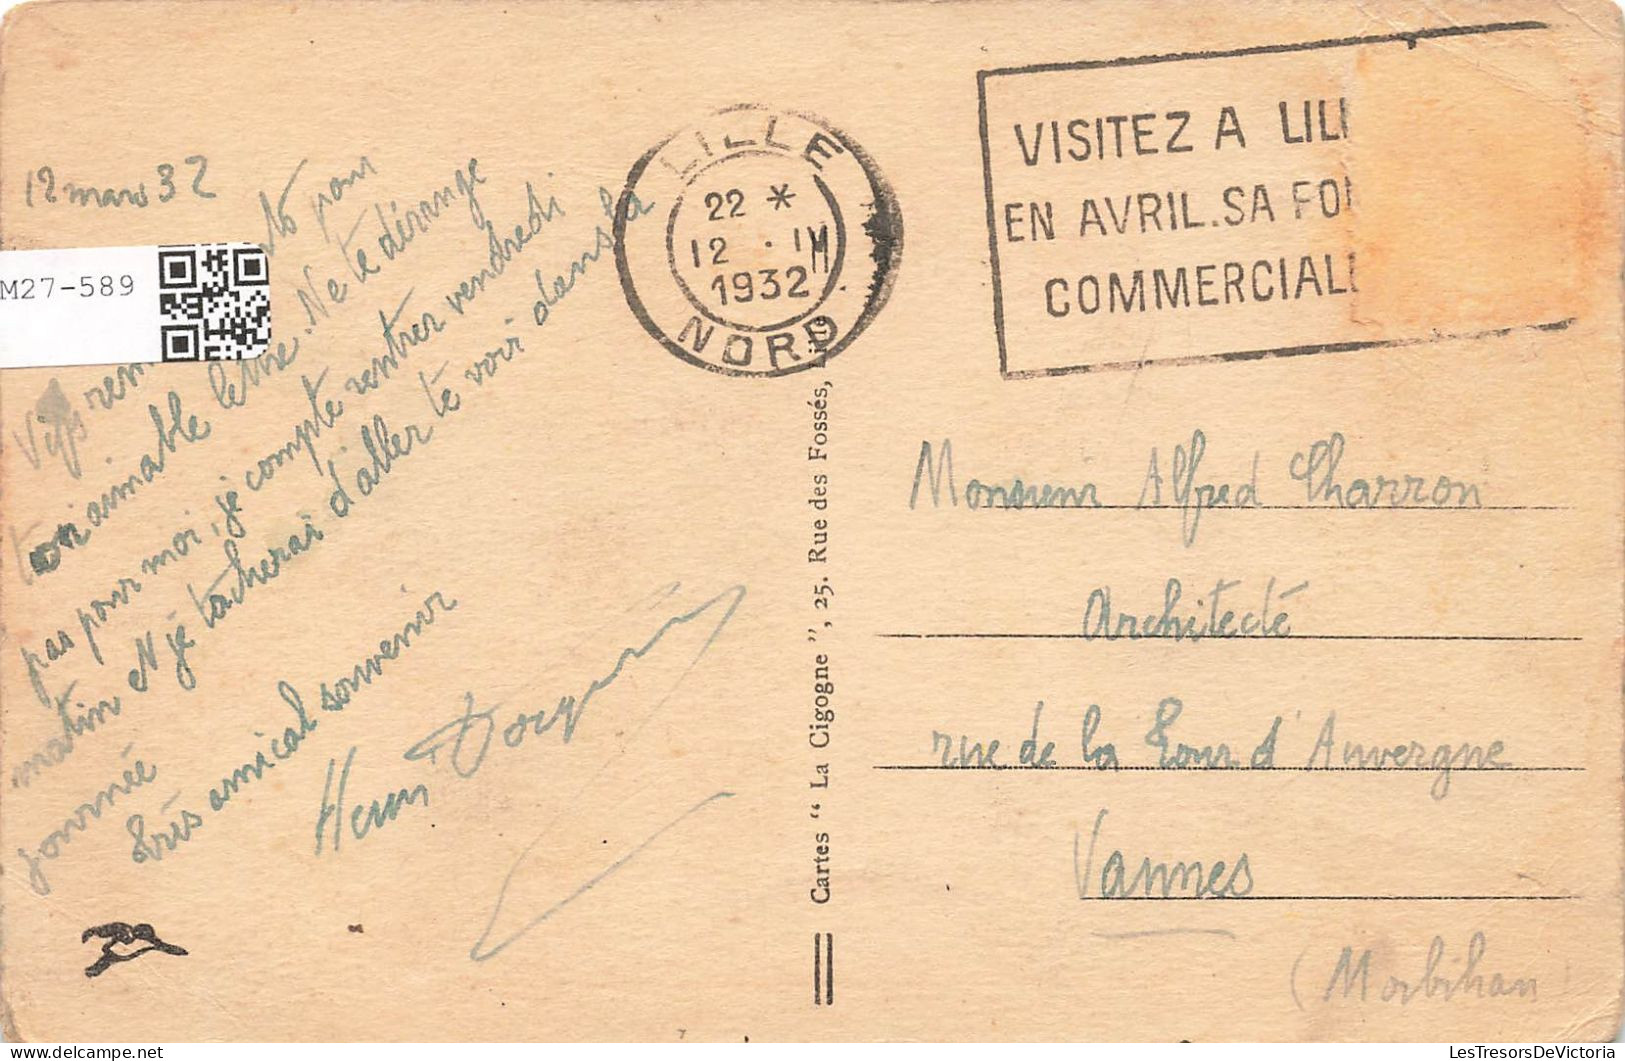 12 mars 32
Vifs rem ts pour
ton aimable lettre. Ne te dérange
pas pour moi, je compte rentrer vendredi
matin & je tâcherai d'aller te voir dans la
journée
Très amical souvenir
Henri
M27-589
LILLE
22 *
12 . III
1932
NORD
VISITEZ A LILL
EN AVRIL. SA FOI
COMMERCIALE
Cartes "La Cigogne", 25. Rue des Fossés, Lille
Monsieur Alfred Charron
Architecte
rue de la Tour d'Auvergne
Vannes
(Morbihan)
LesTresorsDeVictoria